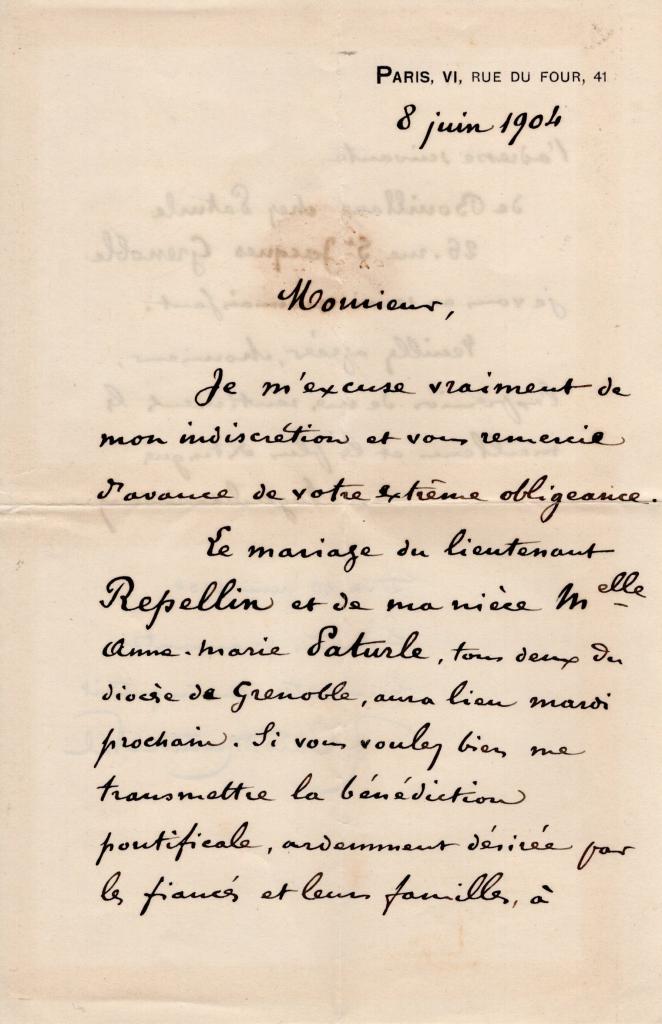 PARIS, VI, RUE DU FOUR, 41
8 juin 1904
Monsieur,
Je m'excuse vraiment de
mon indiscrétion et vous remercie
d'avance de votre extrême obligeance.
Le mariage du lieutenant
Repellin et de ma nièce Melle
Anne-Marie Paturle, tous deux du
diocèse de Grenoble, aura lieu mardi
prochain. Si vous voulez bien me
transmettre la bénédiction
pontificale, ardemment désirée par
les fiancés et leurs familles, à